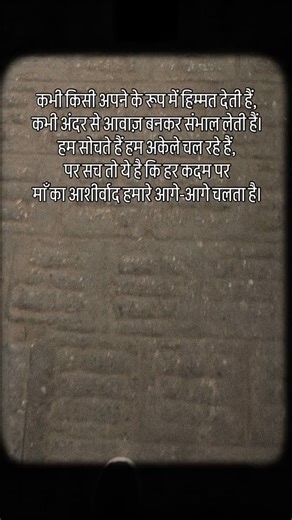 कभी किसी अपने के रूप में हिम्मत देती हैं,
कभी अंदर से आवाज़ बनकर संभाल लेती हैं।
हम सोचते हैं हम अकेले चल रहे हैं,
पर सच तो ये है कि हर कदम पर
माँ का आशीर्वाद हमारे आगे-आगे चलता है।